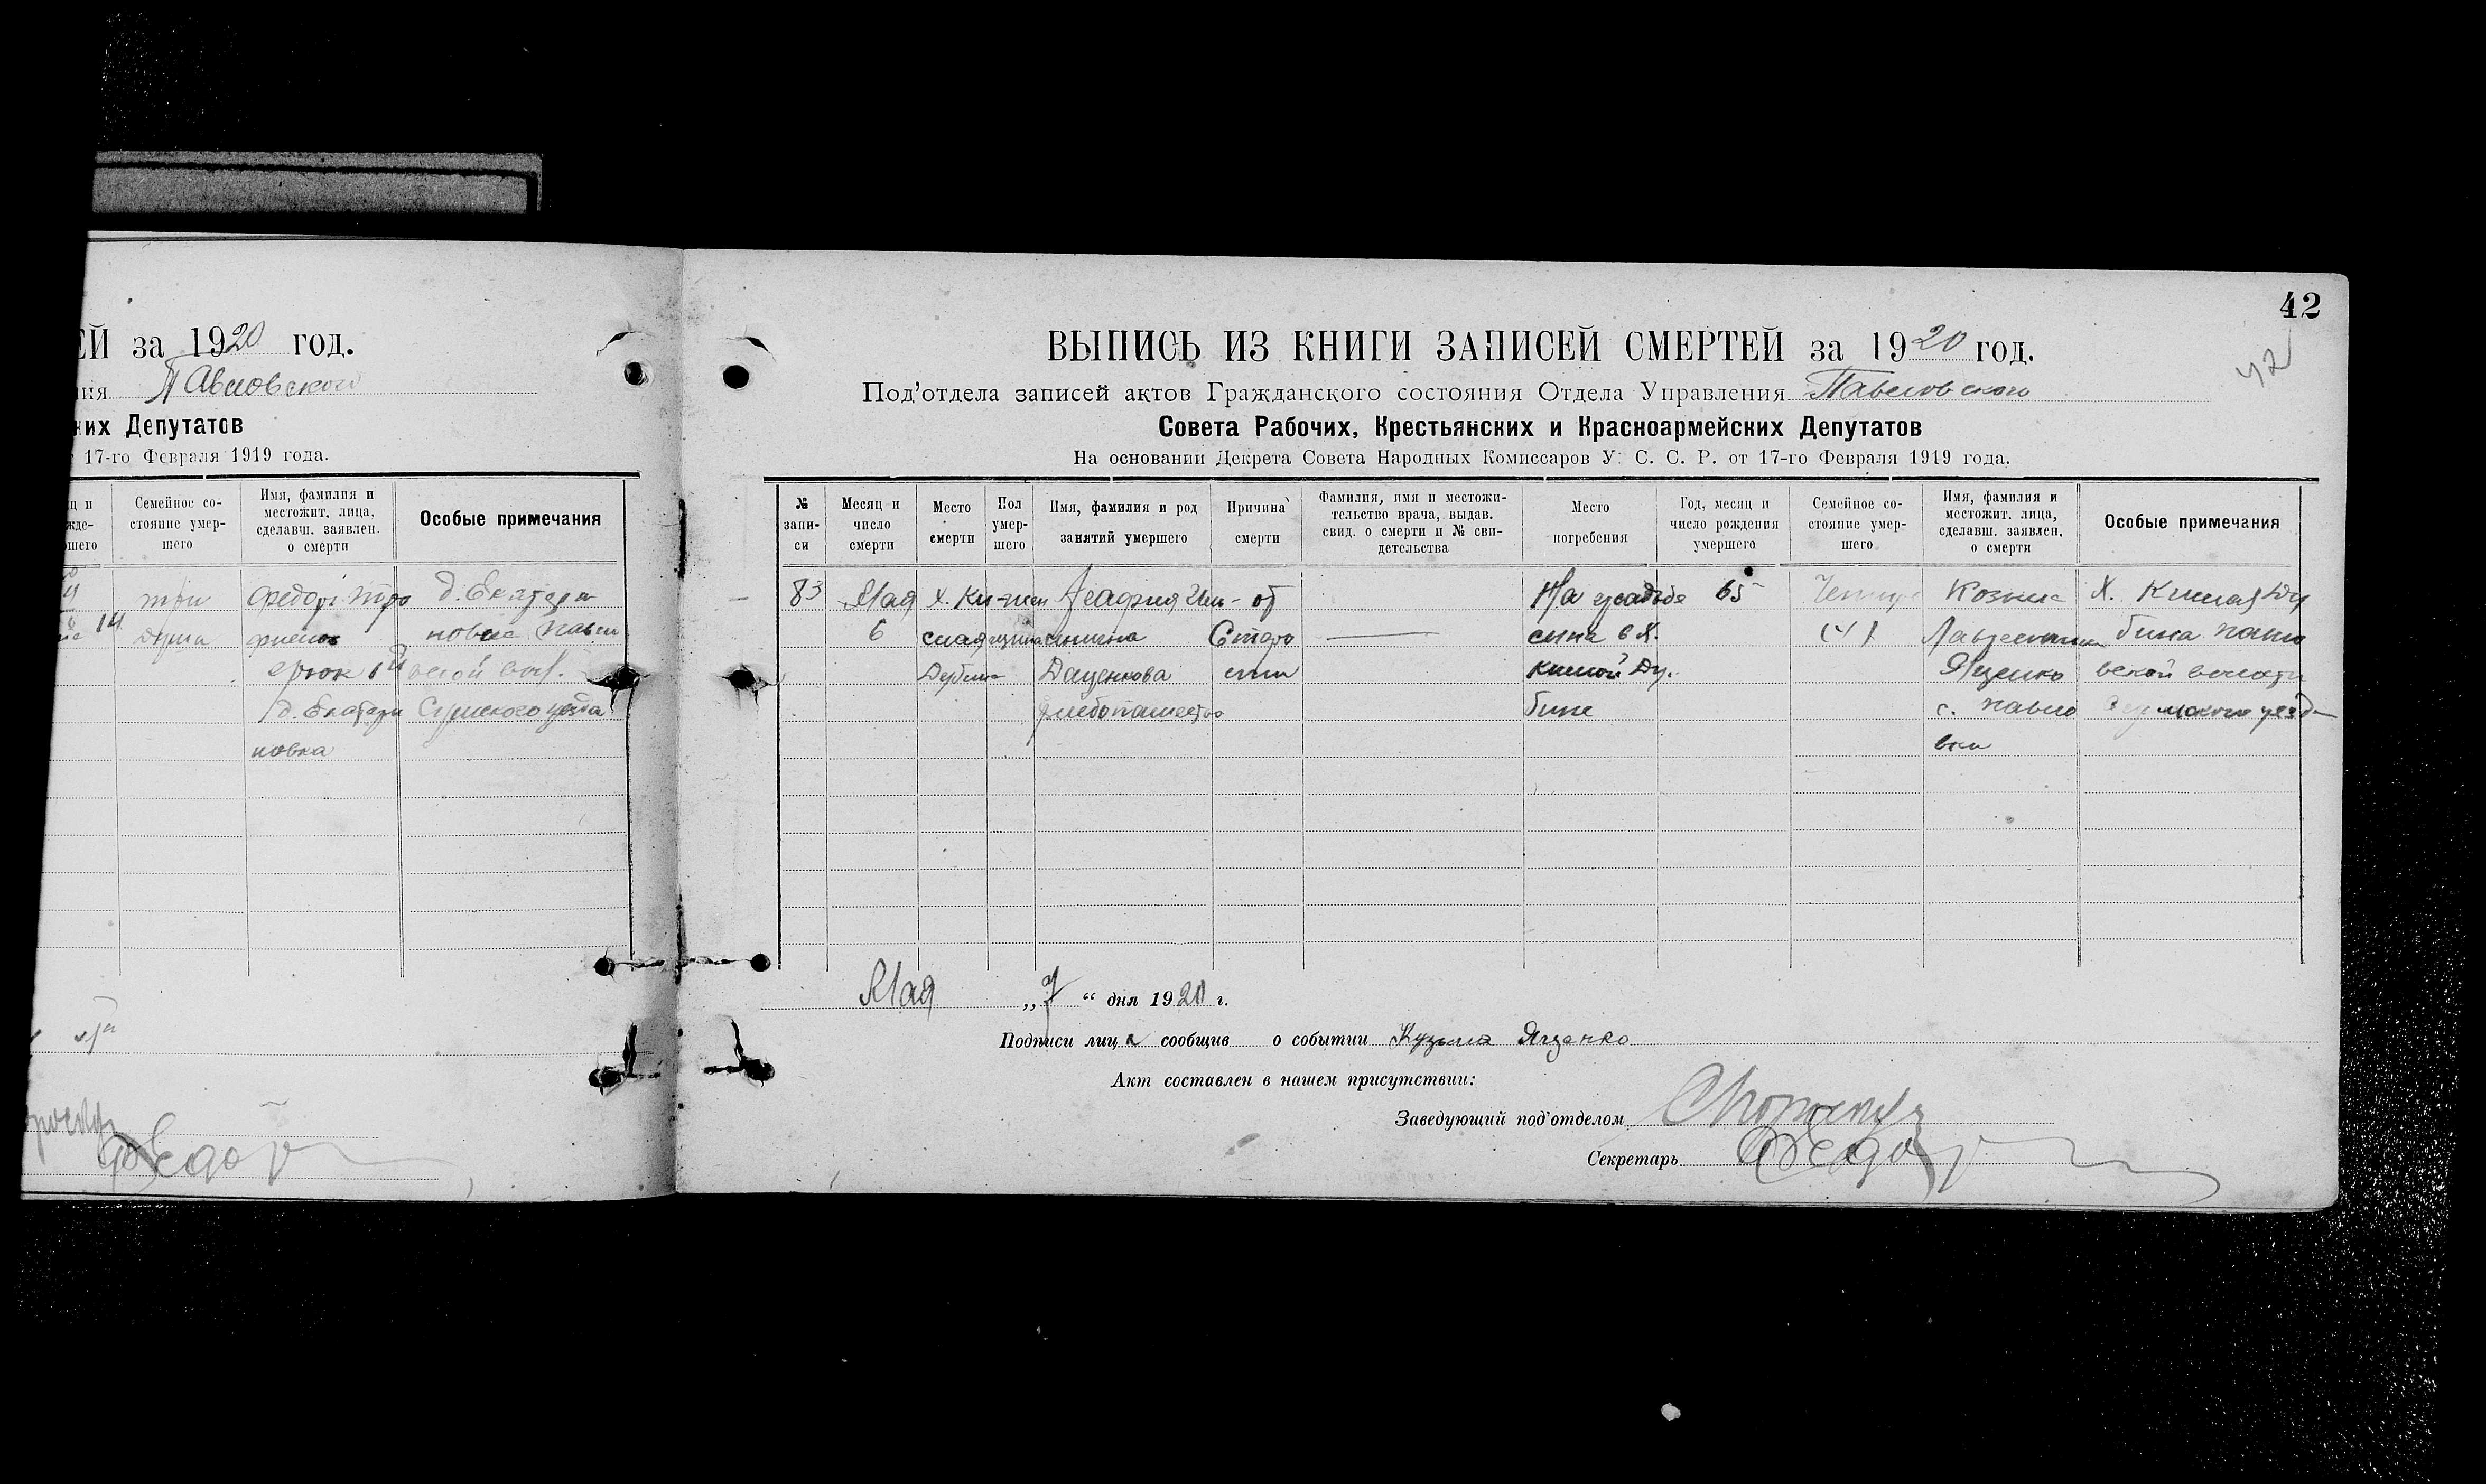 ЕЙ за 1920 год.
ния Павловского
ких Депутатов
17-го Февраля 1919 года.
Семейное со-
стояние умер-
шего
Имя, фамилия и
местожит. лица,
сделавш. заявлен.
о смерти
Особые примечания
три
душа
Федор
д. Екатери
новка
д. Екатери
новка
Сумского уезда
14
42
42
ВЫПИСЬ ИЗ КНИГИ ЗАПИСЕЙ СМЕРТЕЙ за 1920 год.
Под’отдела записей актов Гражданского состояния Отдела Управления Павловского
Совета Рабочих, Крестьянских и Красноармейских Депутатов
На основании Декрета Совета Народных Комиссаров У. С. С. Р. от 17-го Февраля 1919 года.
№
запи-
си
Месяц и
число
смерти
Место
смерти
Пол
умер-
шего
Имя, фамилия и род
занятий умершего
Причина
смерти
Фамилия, имя и местожи-
тельство врача, выдав.
свид. о смерти и № сви-
детельства
Место
погребения
Год, месяц и
число рождения
умершего
Семейное со-
стояние умер-
шего
Имя, фамилия и
местожит. лица,
сделавш. заявлен.
о смерти
Особые примечания
83
Мая
6
х. Ки-
слая
Дубина
жен
щина
Агафия
Даценкова
хлебопашество
от
Старо
сти
На усадьбе
сына в х.
кислой Ду.
бине
65
Четыре
(4)
Козьма
Лаврентиев
Яценко
с. Павло
вки
Х. Кислая Ду
бина Павло
вской волости
Сумского уезда
Мая „7“ дня 1920 г.
Подписи лица сообщив о событии Кузьма Яценко
Акт составлен в нашем присутствии:
Заведующий под’отделом
Секретарь